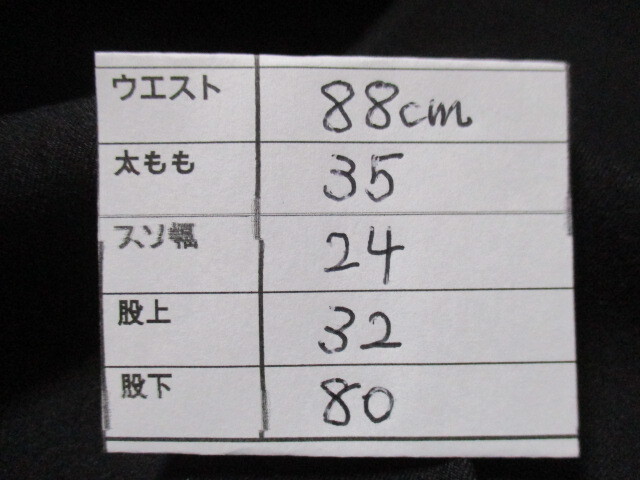 ウエスト 88cm
太もも 35
スソ幅 24
股上 32
股下 80